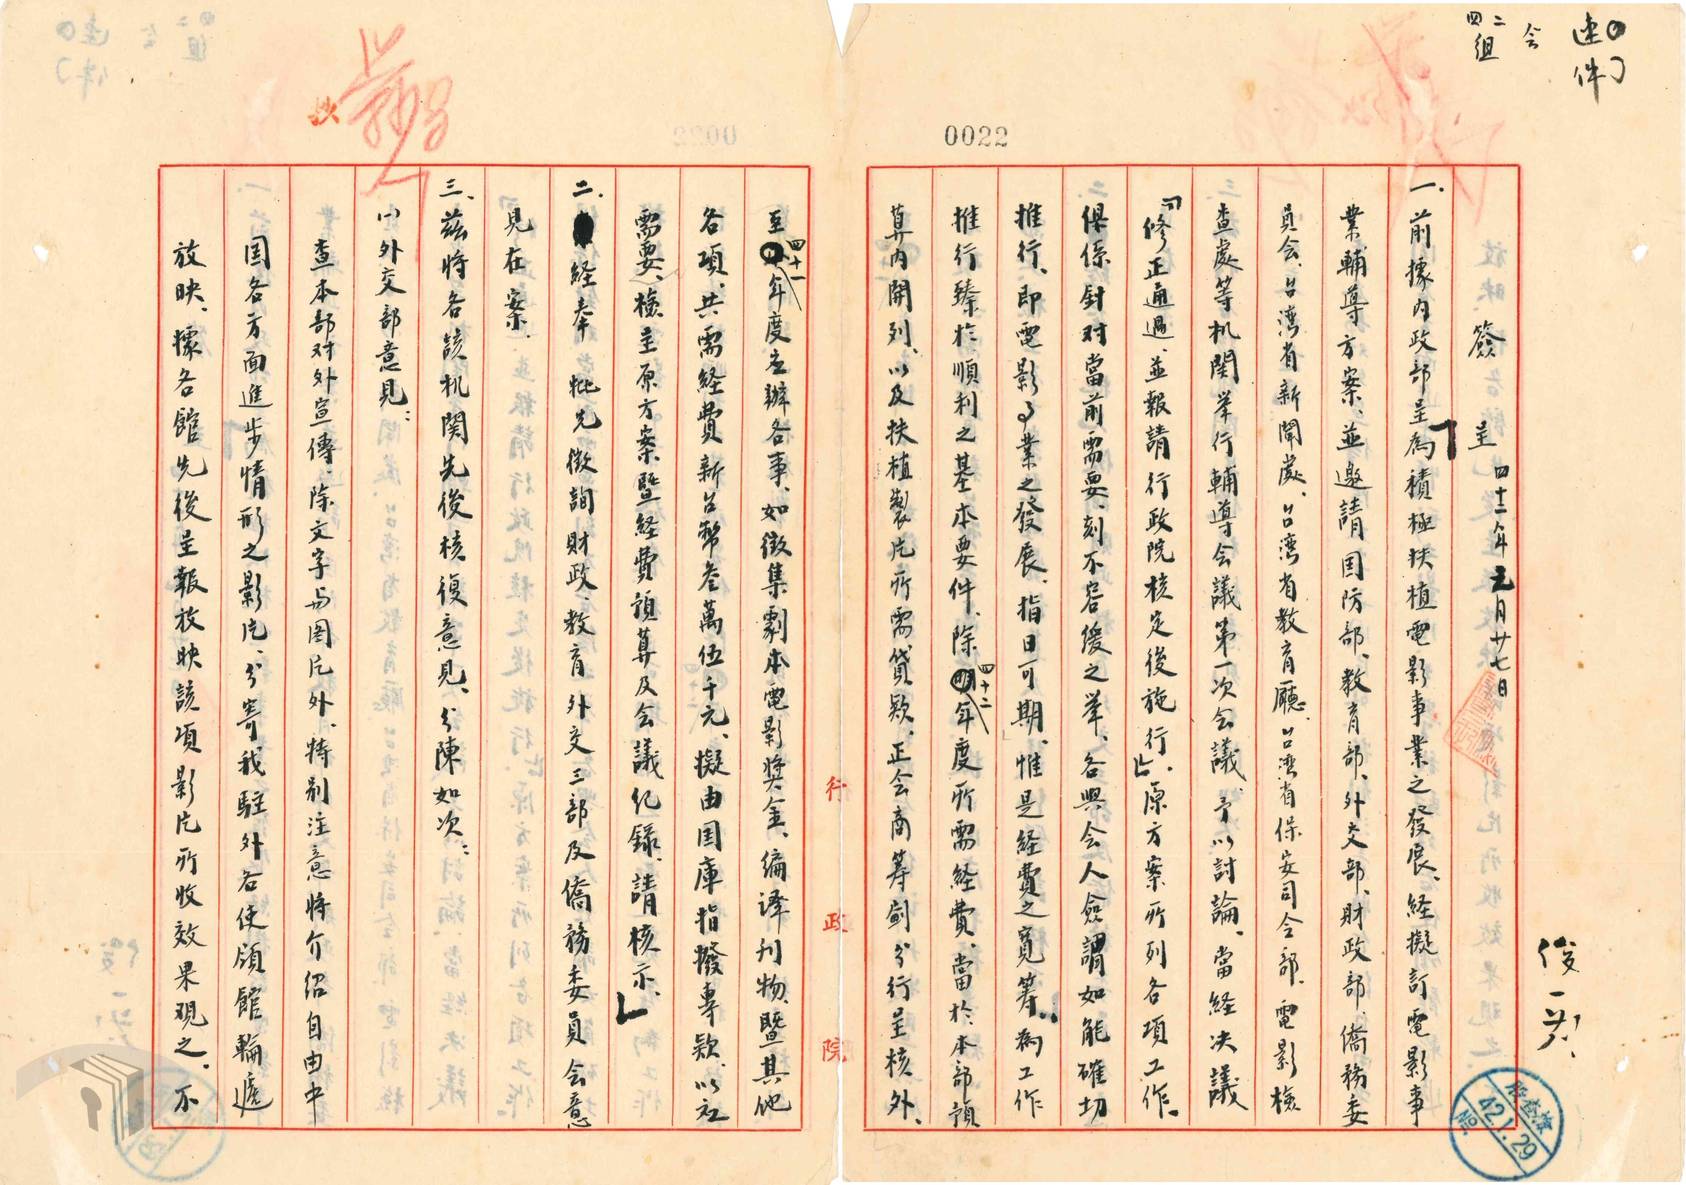 速件
會
二
四組
0022
簽呈 四十二年元月廿七日
一、前據內政部呈「為積極扶植電影事業之發展、經擬訂電影事
業輔導方案、並邀請国防部、教育部、外交部、財政部、僑務委
員会、台湾省新聞處、台湾省教育廳、台湾省保安司令部、電影檢
查處等机関举行輔導会議第一次会議、予以討論、當経决議
『修正通過、並報請行政院核定後施行』、原方案所列各項工作。
俱係針对當前需要、刻不容缓之举、各與会人僉謂如能確切
推行、即電影事業之發展、指日可期、惟是経費之寬筹、為工作
推行臻於順利之基本要件、除四十二年度所需経費、當於本部預
算內開列、以及扶植製片所需貸欵、正会商筹劃分行呈核外、
行政院
至四十一年度应辦各事、如徵集劇本電影獎金、編譯刊物、暨其他
各項、共需経費新台幣叁萬伍千元、擬由国庫指撥專欵、以应
需要、檢呈原方案暨経費預算及会議紀錄、請核示」
二、経奉 批先徵詢財政、教育外交三部及僑務委員会意
見在案
三、茲將各該机関先後核復意見、分陳如次：
㈠外交部意見：
查本部对外宣傳、除文字与图片外、特别注意將介绍自由中
国各方面進步情形之影片、分寄我駐外各使領館輪遞
放映、據各館先後呈報放映該項影片所收效果观之、不
42.1.29
No.